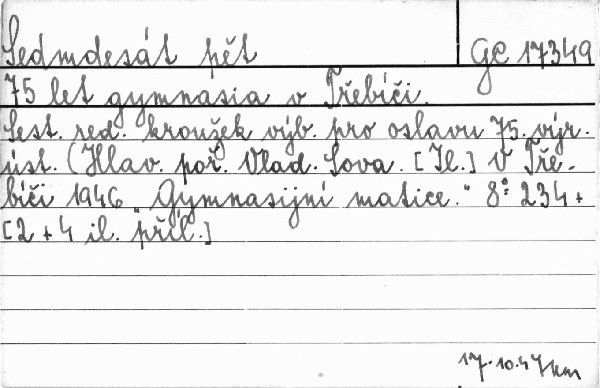 Sedmdesát pět GC 17349
75 let gymnasia v Třebíči.
Sest. red. kroužek výb. pro oslavu 75. výr.
úst. (Hlav. poř. Vlad. Sova. [Il.] V Tře-
bíči 1946 "Gymnasijní matice." 8° 234 +
[2 + 4 il. příl.]
17.10.47 km